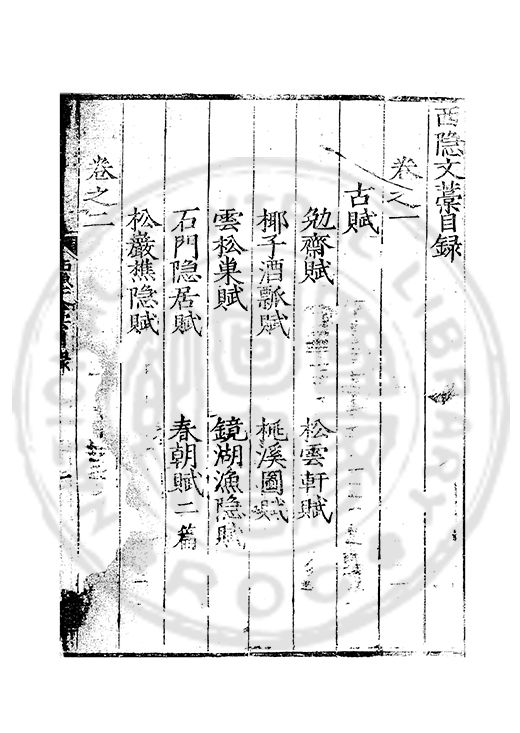 西隐文藳目録
卷之一
古賦
勉齋賦 松雲軒賦
椰子酒瓢賦 桃溪圖賦
雲松巢賦 鏡湖漁隐賦
石門隐居賦 春朝賦二篇
松巖樵隐賦
卷之二